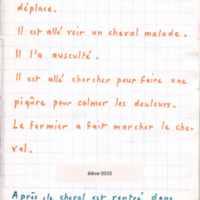 déplace.
Il est allé voir un cheval malade.
Il l'a ausculté.
Il est allé chercher pour faire une
piqûre pour calmer les douleurs.
Le fermier a fait marcher le che-
val.
élève 0035
Après, le cheval est rentré dans